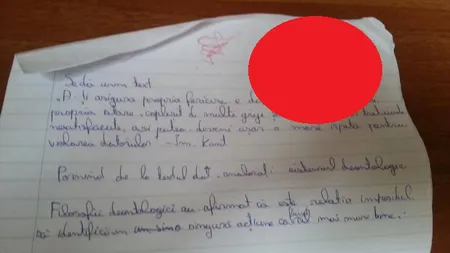 Se dă urm text
„A-ți asigura propria fericire e d
propria stare, copleșit de multe griji
nesatisfăcute, asi putea deveni ușor o mare ispită pentru
violarea datoriilor" -Im. Kant
Pornind de la textul dat, analizați sistemul deontologic
Filosofii deontologici au afirmat că este relativ imposibil
să identificăm singura acțiune ca fiind mai mare bine.